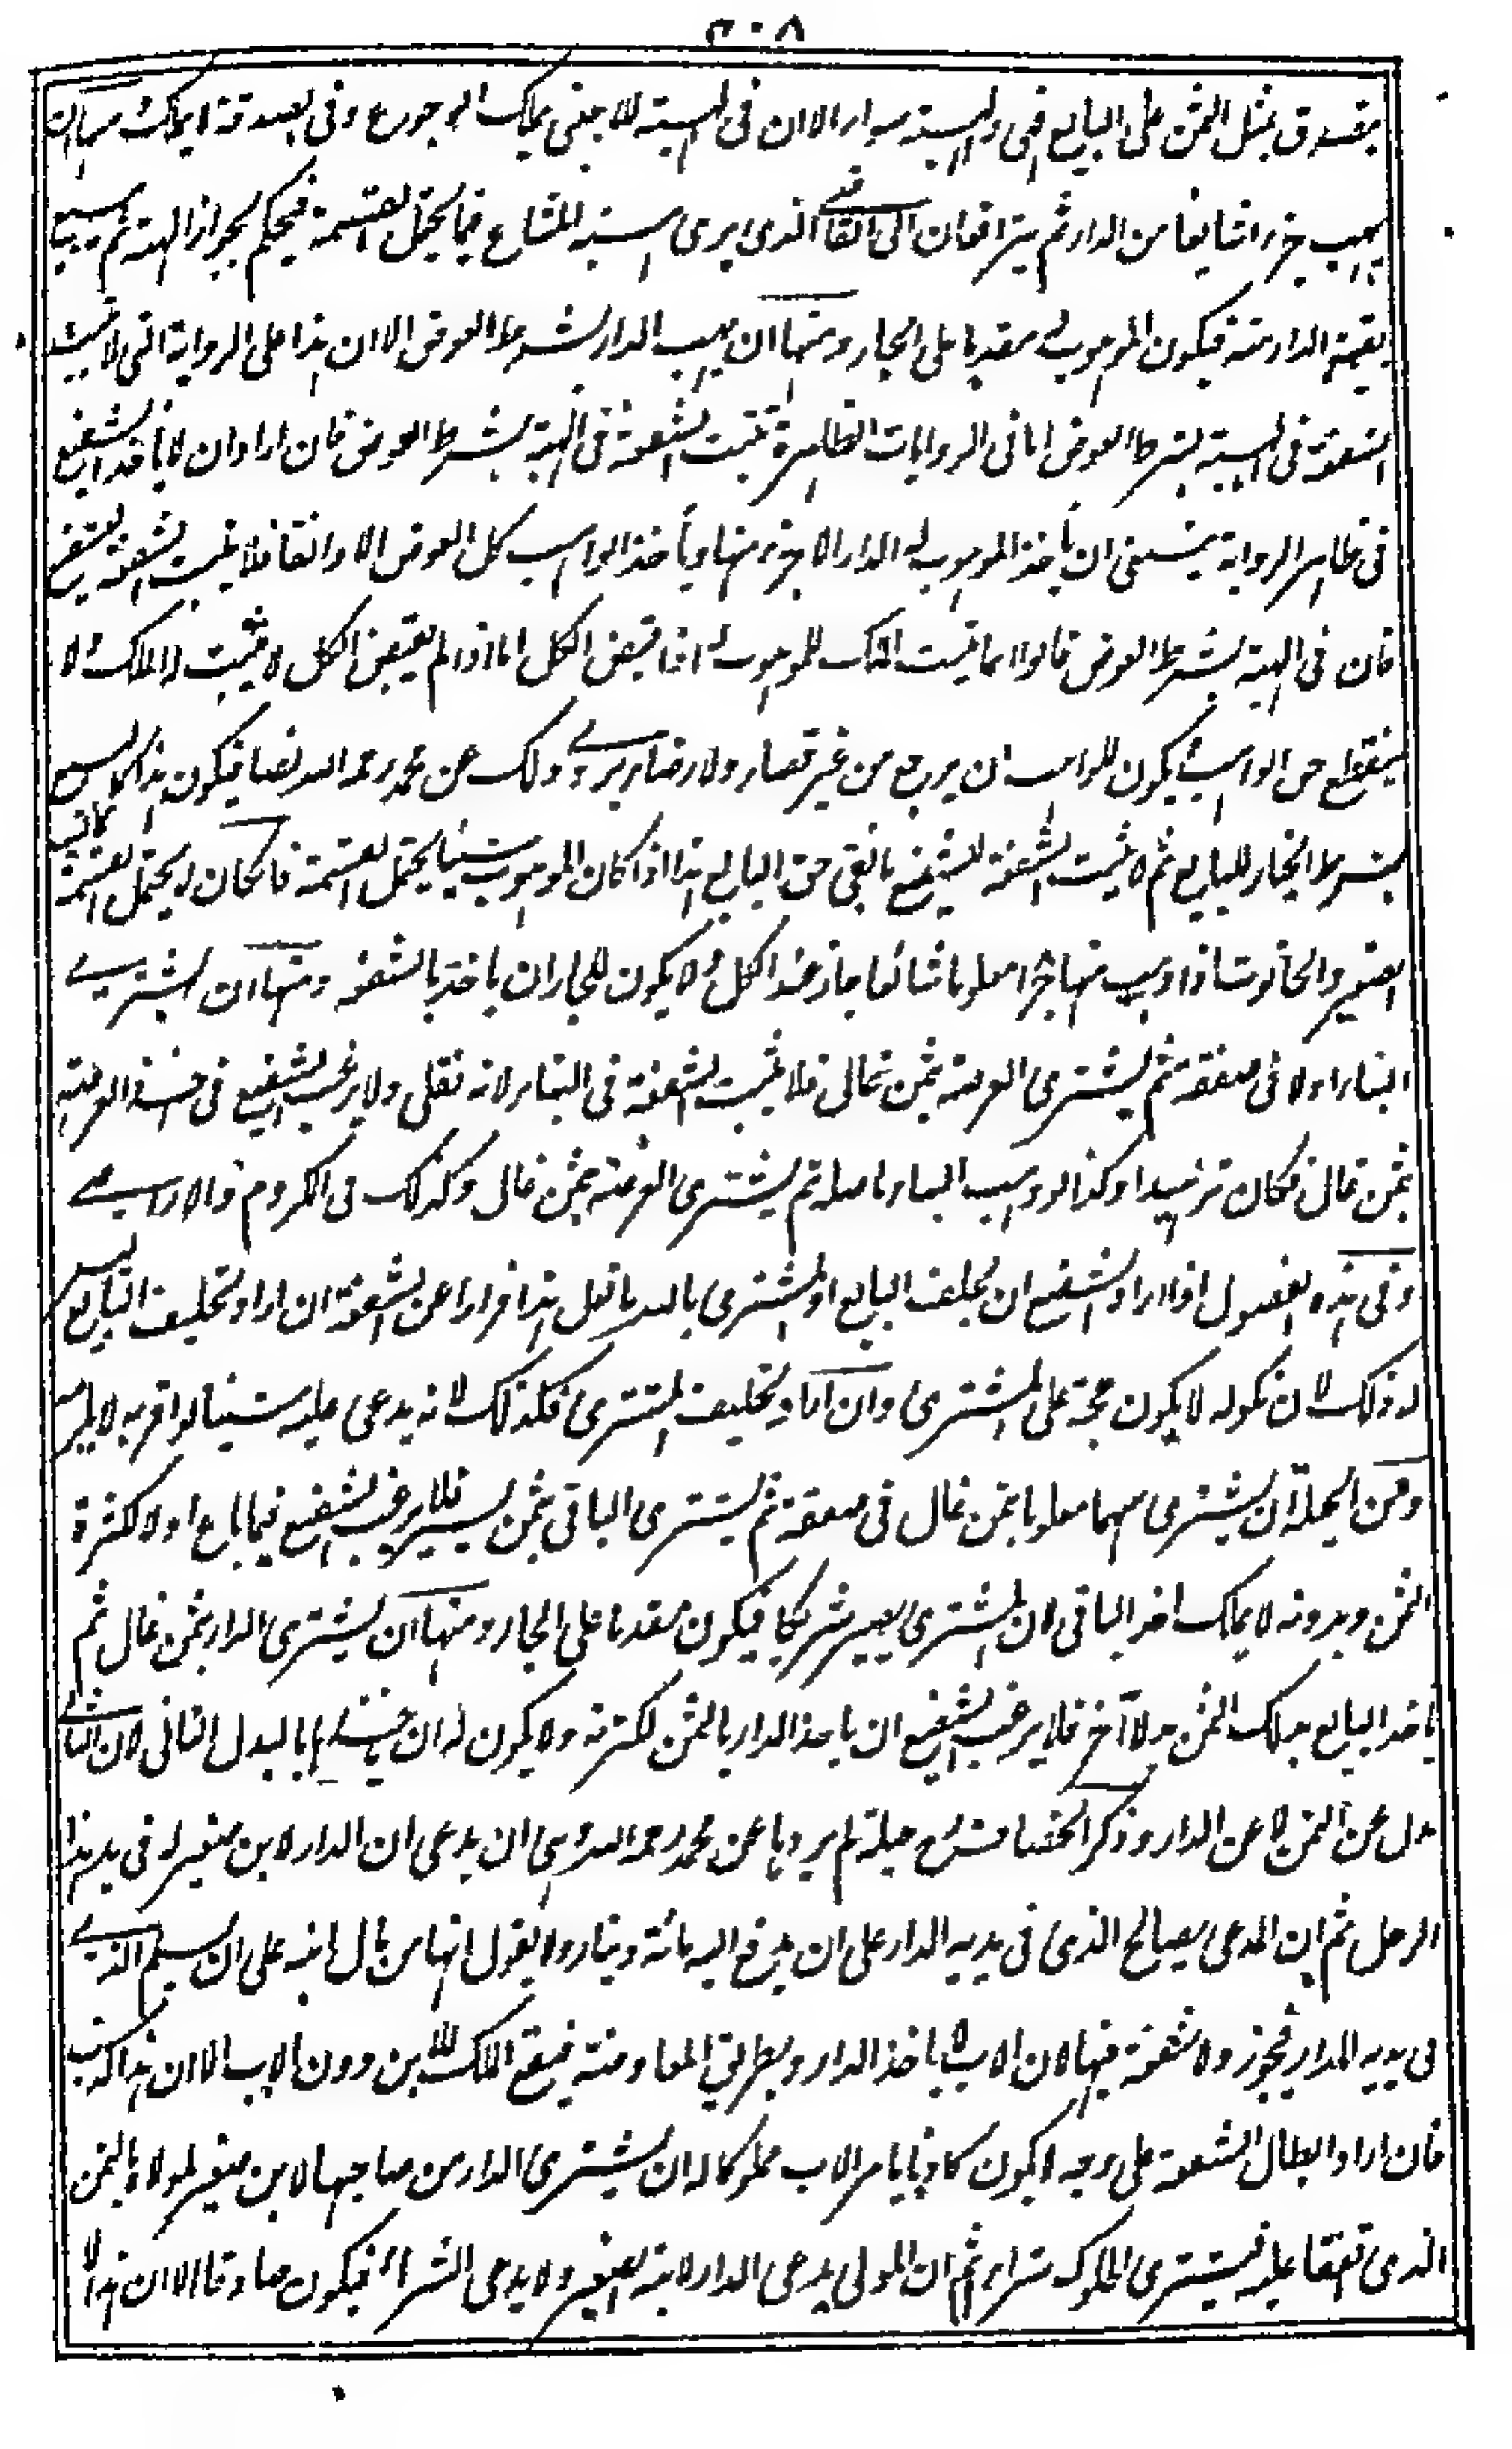 ٣٠٨
يتصدق بمثل الثمن على البايع الهبة والهبة سواء الا ان فى الهبة للاجنبى يملك الرجوع وفى الصدقة لا يملك منها ان
يهب جزءا شايعا من الدار ثم يترافعان الى القاضى الذى يرى الهبة للمشاع فيما يحتمل القسمة فيحكم بجواز الهبة ثم يبيع
بقية الدار منه فيكون الموهوب له مقدما على الجار ومنها ان يهب الدار بشرط العوض الا ان هذا على الرواية التى لا يثبت
الشفعة فى الهبة بشرط العوض اما فى الروايات الظاهرة تثبت الشفعة فى الهبة بشرط العوض فان اراد ان لا ياخذ الشفيع
فى ظاهر الرواية ينبغى ان يأخذ الموهوب له الدار الا جزء منها ويأخذ الواهب كل العوض الا دانقا فلا يثبت الشفعة للشفيع
فان فى الهبة بشرط العوض قالوا انما يثبت الملك للموهوب له اذا قبض الكل اما اذا لم يقبض الكل لا يثبت له الملك ولا
ينقطع حق الواهب فيكون للواهب ان يرجع من غير قضاء ولا رضا يروى ذلك عن محمد رحمه الله نصا فيكون هذا كالبيع
بشرط الخيار للبايع ثم لا يثبت الشفعة للشفيع ما بقى حق البايع هذا اذا كان الموهوب شيئا يحتمل القسمة فان كان لا يحتمل القسمة كالبيت
الصغير والحانوت اذا وهب منها جزءا معلوما شائعا جاز عند الكل ولا يكون للجار ان ياخذ بالشفعة ومنها ان يشترى
البناء اولا فى صفقة ثم يشترى العرصة بثمن غالى فلا يثبت الشفعة فى البناء لانه نقلى ولا يرغب الشفيع فى اخذ العرصة
بثمن غال فكان تزهيدا وكذا لو وهب البناء باصله ثم يشترى العرصة بثمن غال وكذلك فى الكروم والاراضى
وفى هذه الفصول اذا اراد الشفيع ان يحلف البايع او المشترى بالله ما فعل هذا فرارا عن الشفعة ان اراد تحليف البايع ليس
له ذلك لان نكوله لا يكون حجة على المشترى وان اراد تحليف المشترى فكذلك لانه يدعى عليه شيئا لو اقر به لا يلزمه
ومن الحيلة ان يشترى سهما معلوما بثمن غال فى صفقة ثم يشترى الباقى بثمن يسير فلا يرغب الشفيع فيما باع اولا لكثرة
الثمن وبدونه لا يملك اخذ الباقى لان المشترى يصير شريكا فيكون مقدما على الجار ومنها ان يشترى الدار بثمن غال ثم
ياخذ البايع بدلك الثمن بدلا آخر فلا يرغب الشفيع ان ياخذ الدار بالثمن لكثرته ولا يكون له ان ياخذها بالبدل الثانى لان الثانى
بدل عن الثمن لا عن الدار وذكر الخصاف رح حيلة لم يروها عن محمد رحمه الله وهى ان يدعى ان الدار لابن صغير له فى يد هذا
الرجل ثم ان المدعى يصالح الذى فى يديه الدار على ان يدفع اليه مائة دينار ولا يقول انها من مال ابنه على ان يسلم الذى
فى يديه الدار فيجوز ولا شفعة فيها لان الاب لا ياخذ الدار بطريق المعاوضة فيقع الملك للابن دون الاب الا ان هذا كذب
فان اراد ابطال الشفعة على وجه لا يكون كاذبا يامر الاب مملوكا له ان يشترى الدار من صاحبها لابن صغير لمولاه بالثمن
الذى اتفقا عليه فيشترى المملوك شراء ثم ان المولى يدعى الدار لابنه الصغير ولا يدعى الشراء فيكون صادقا الا ان هذا لا